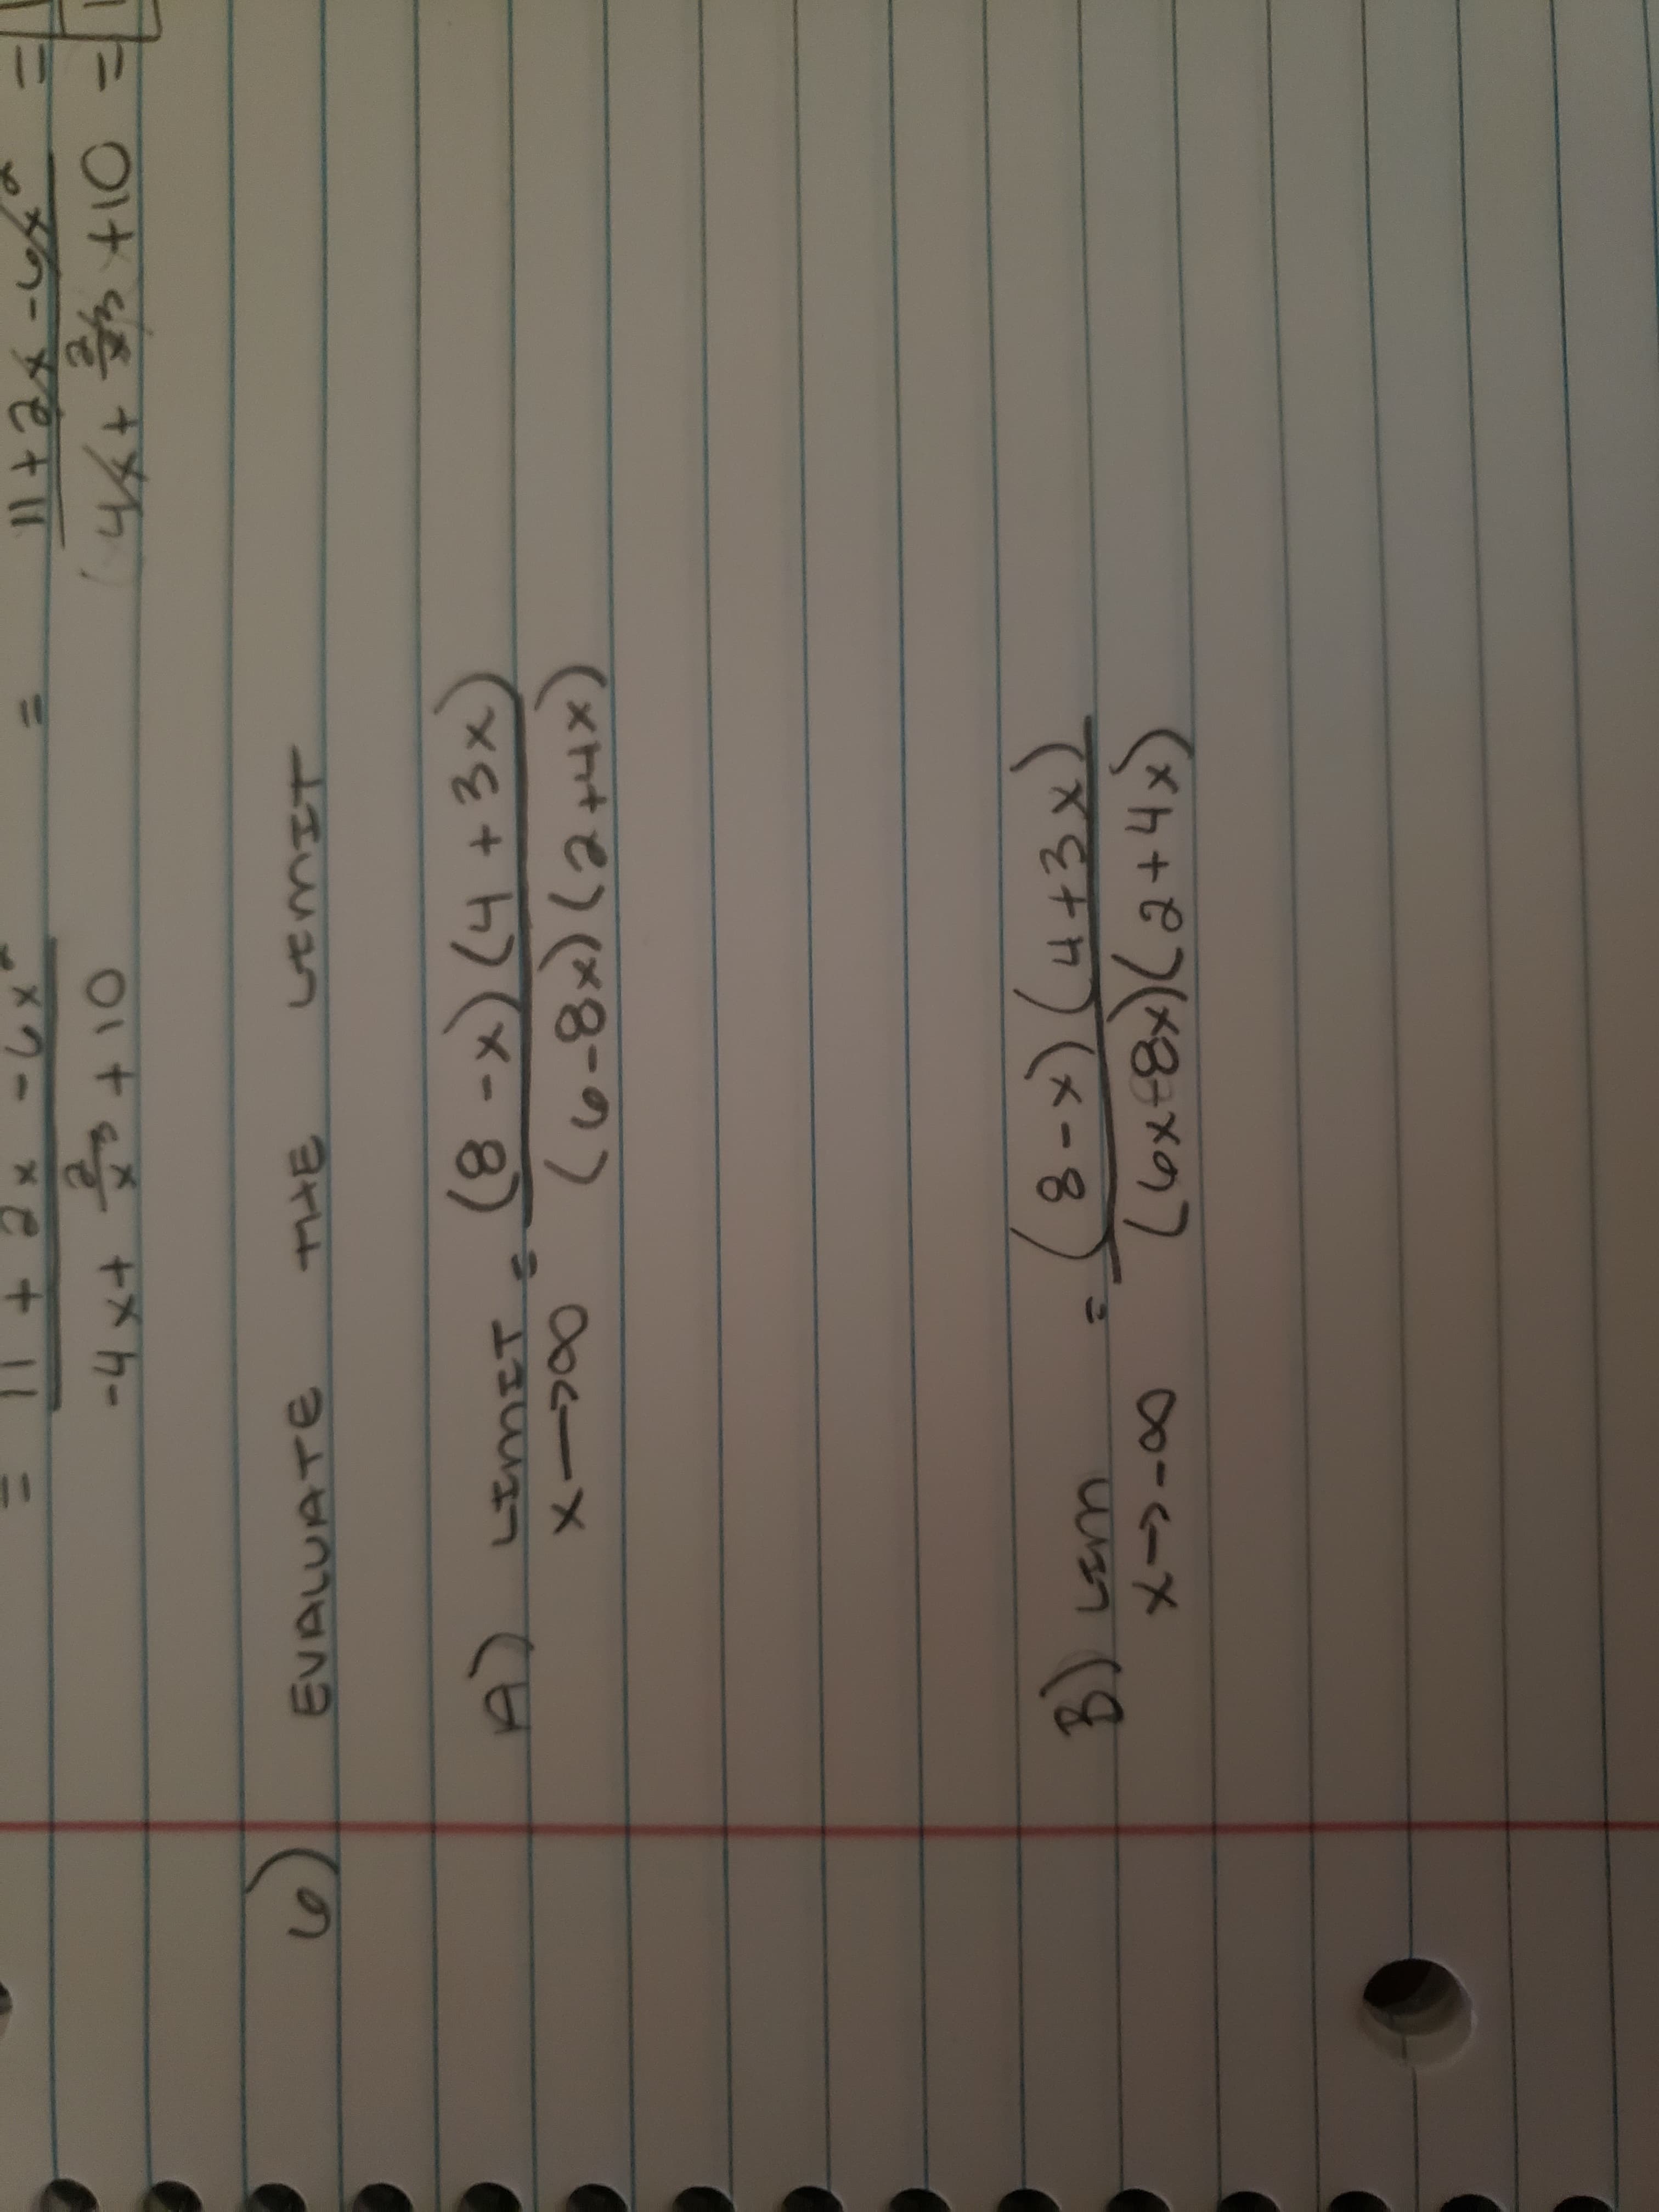 = 11 + 2x - 6x² = 11 + 2x - 6x² =
-4x + 2/x³ + 10 4x + 2/x³ + 10 =
6) EVALUATE THE LIMIT
A) LIMIT = (8 - x)(4 + 3x)
x→∞ (6 - 8x)(2 + 4x)
B) LIM = (8 - x)(4 + 3x)
x→-∞ (6x-8x)(2 + 4x)